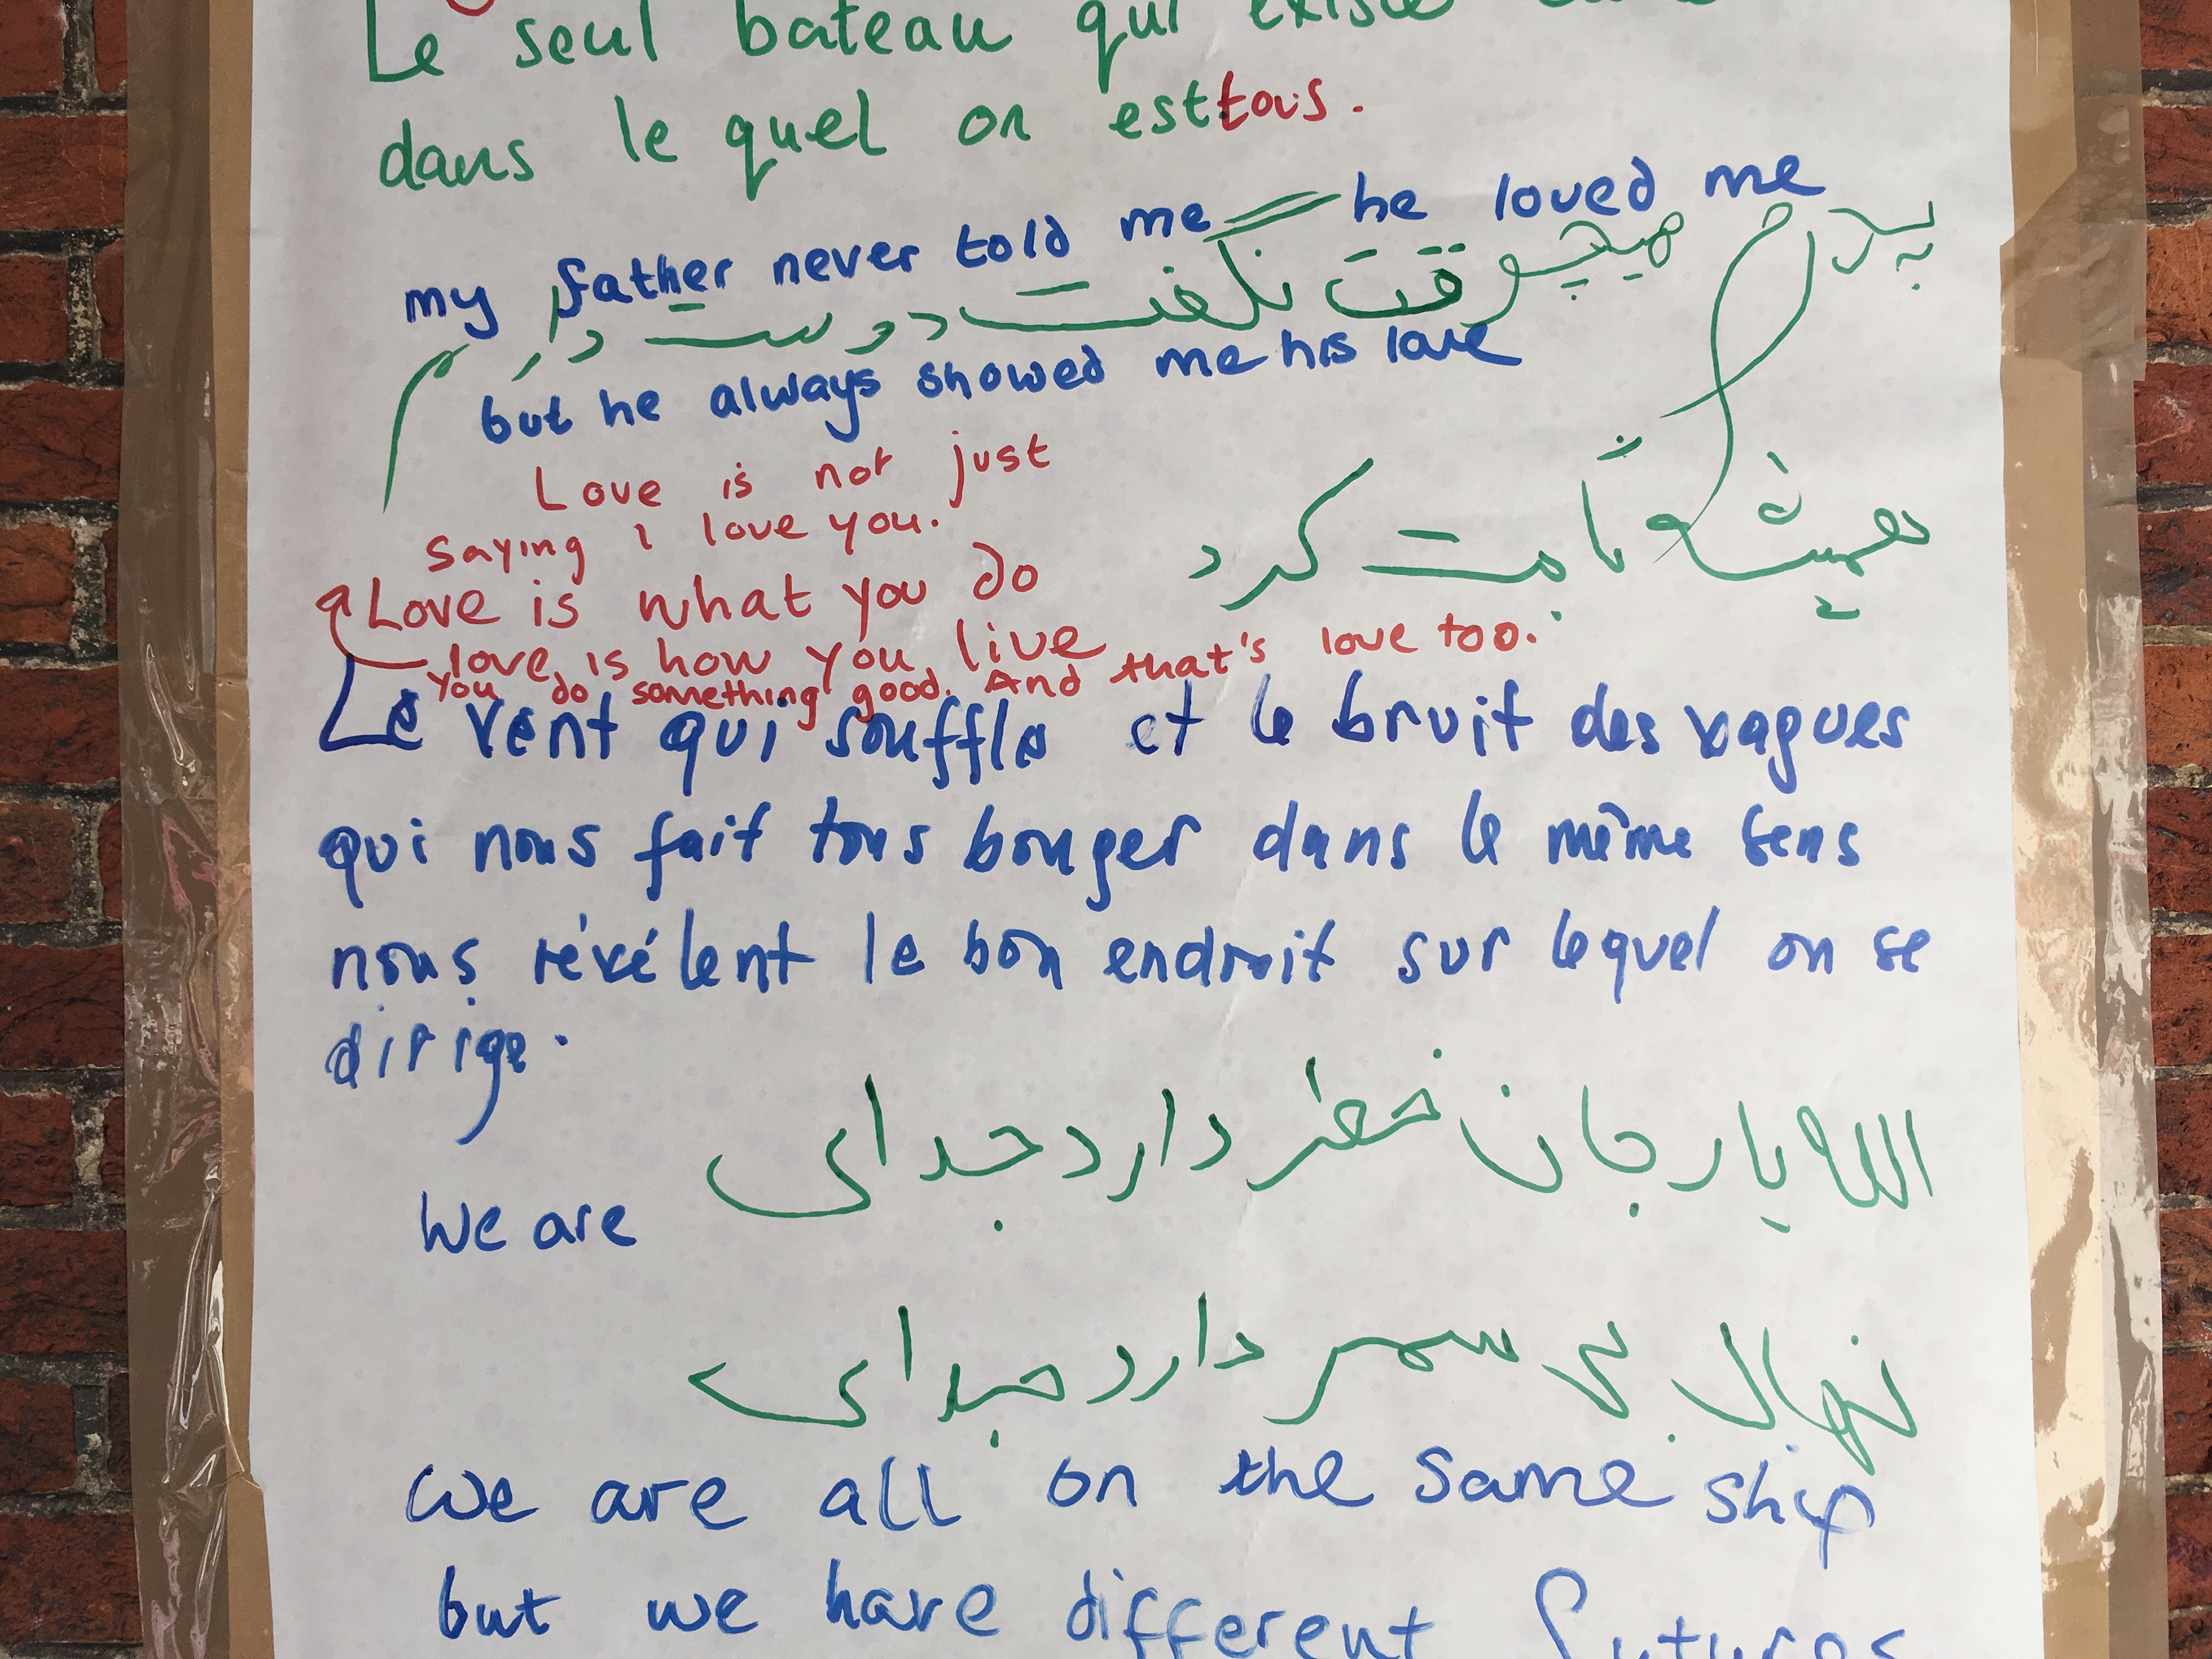 Le seul bateau qui existe
dans le quel on esttous.
my father never told me he loved me
پدرم هیچوقت نگفت دوست دارم
but he always showed me his love
Love is not just
saying I love you.
همیشه ثابت کرد
Love is what you do
love is how you live
You do something good. And that's love too.
Le vent qui souffle et le bruit des vagues
qui nous fait tous bouger dans le même sens
nous révélent le bon endroit sur lequel on se
dirige.
الله یار جان خطر دارد جدای
we are
نهال بی سمر دارد جدای
we are all on the same ship
but we have different futures